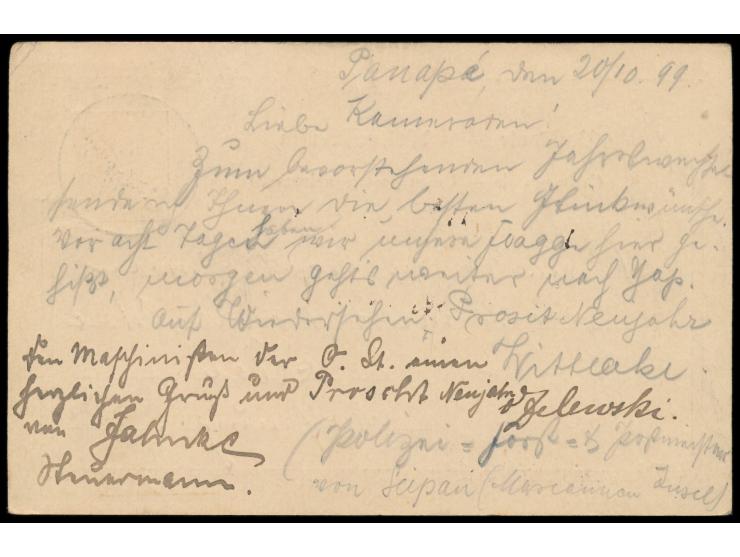 Panapé, den 20/10.99.
Liebe Kameraden!
Zum bevorstehenden Jahreswechsel
sende ich Ihnen die besten Glückwünsche.
Vor acht Tagen haben wir unsere Flagge hier ge-
hißt, morgen gehts weiter nach Yap.
Auf Wiedersehen Prosit Neujahr
Wittlake.
Den Maschinisten der O. St. einen
herzlichen Gruß und Prosit Neujahr
von Jahnke
Steuermann.
Zelewski.
(Polizei = Forst = & Postmeister
von Seipan (Mariannen Insel)